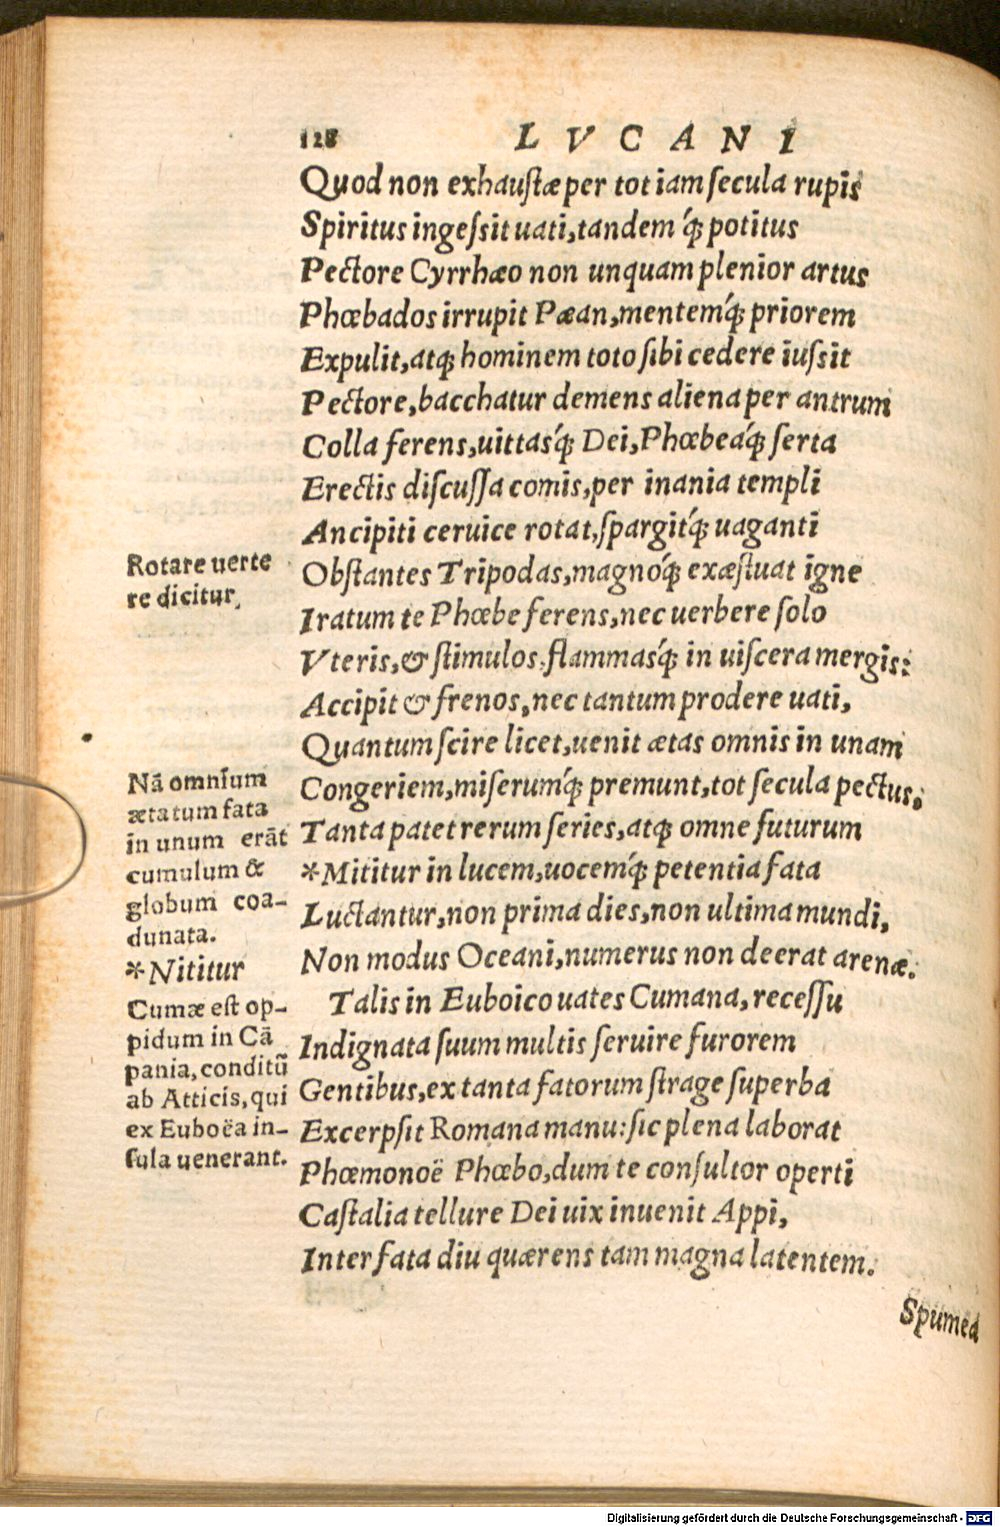 128 LVCANI
Quod non exhaustæ per tot iam secula rupis
Spiritus ingessit uati, tandem q́; potitus
Pectore Cyrrhæo non unquam plenior artus
Phœbados irrupit Pæan, mentemq́; priorem
Expulit, atq; hominem toto sibi cedere iussit
Pectore, bacchatur demens aliena per antrum
Colla ferens, uittasq́; Dei, Phœbeáq́; serta
Erectis discussa comis, per inania templi
Ancipiti ceruice rotat, spargitq́; uaganti
Obstantes Tripodas, magnóq́; exæstuat igne
Iratum te Phœbe ferens, nec uerbere solo
Vteris, & stimulos, flammasq́; in uiscera mergis:
Accipit & frenos, nec tantum prodere uati,
Quantum scire licet, uenit ætas omnis in unam
Congeriem, miserumq́; premunt, tot secula pectus,
Tanta patet rerum series, atq; omne futurum
*Mititur in lucem, uocemq́; petentia fata
Luctantur, non prima dies, non ultima mundi,
Non modus Oceani, numerus non deerat arenæ.
Talis in Euboico uates Cumana, recessu
Indignata suum multis seruire furorem
Gentibus, ex tanta fatorum strage superba
Excerpsit Romana manu: sic plena laborat
Phœmonoë Phœbo, dum te consultor operti
Castalia tellure Dei uix inuenit Appi,
Inter fata diu quærens tam magna latentem.
Spumea
Rotare uerte
re dicitur,
Nã omnium
ætatum fata
in unum erãt
cumulum &
globum coa-
dunata.
*Nititur
Cumæ est op-
pidum in Cã
pania, conditũ
ab Atticis, qui
ex Euboëa in-
sula uenerant.
Digitalisierung gefördert durch die Deutsche Forschungsgemeinschaft - DFG